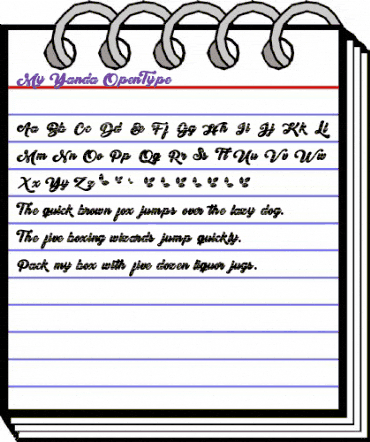 My Yanda OpenType
Aa Bb Cc Dd Ee Ff Gg Hh Ii Jj Kk Ll
Mm Nn Oo Pp Qq Rr Ss Tt Uu Vv Ww
Xx Yy Zz
The quick brown fox jumps over the lazy dog.
The five boxing wizards jump quickly.
Pack my box with five dozen liquor jugs.